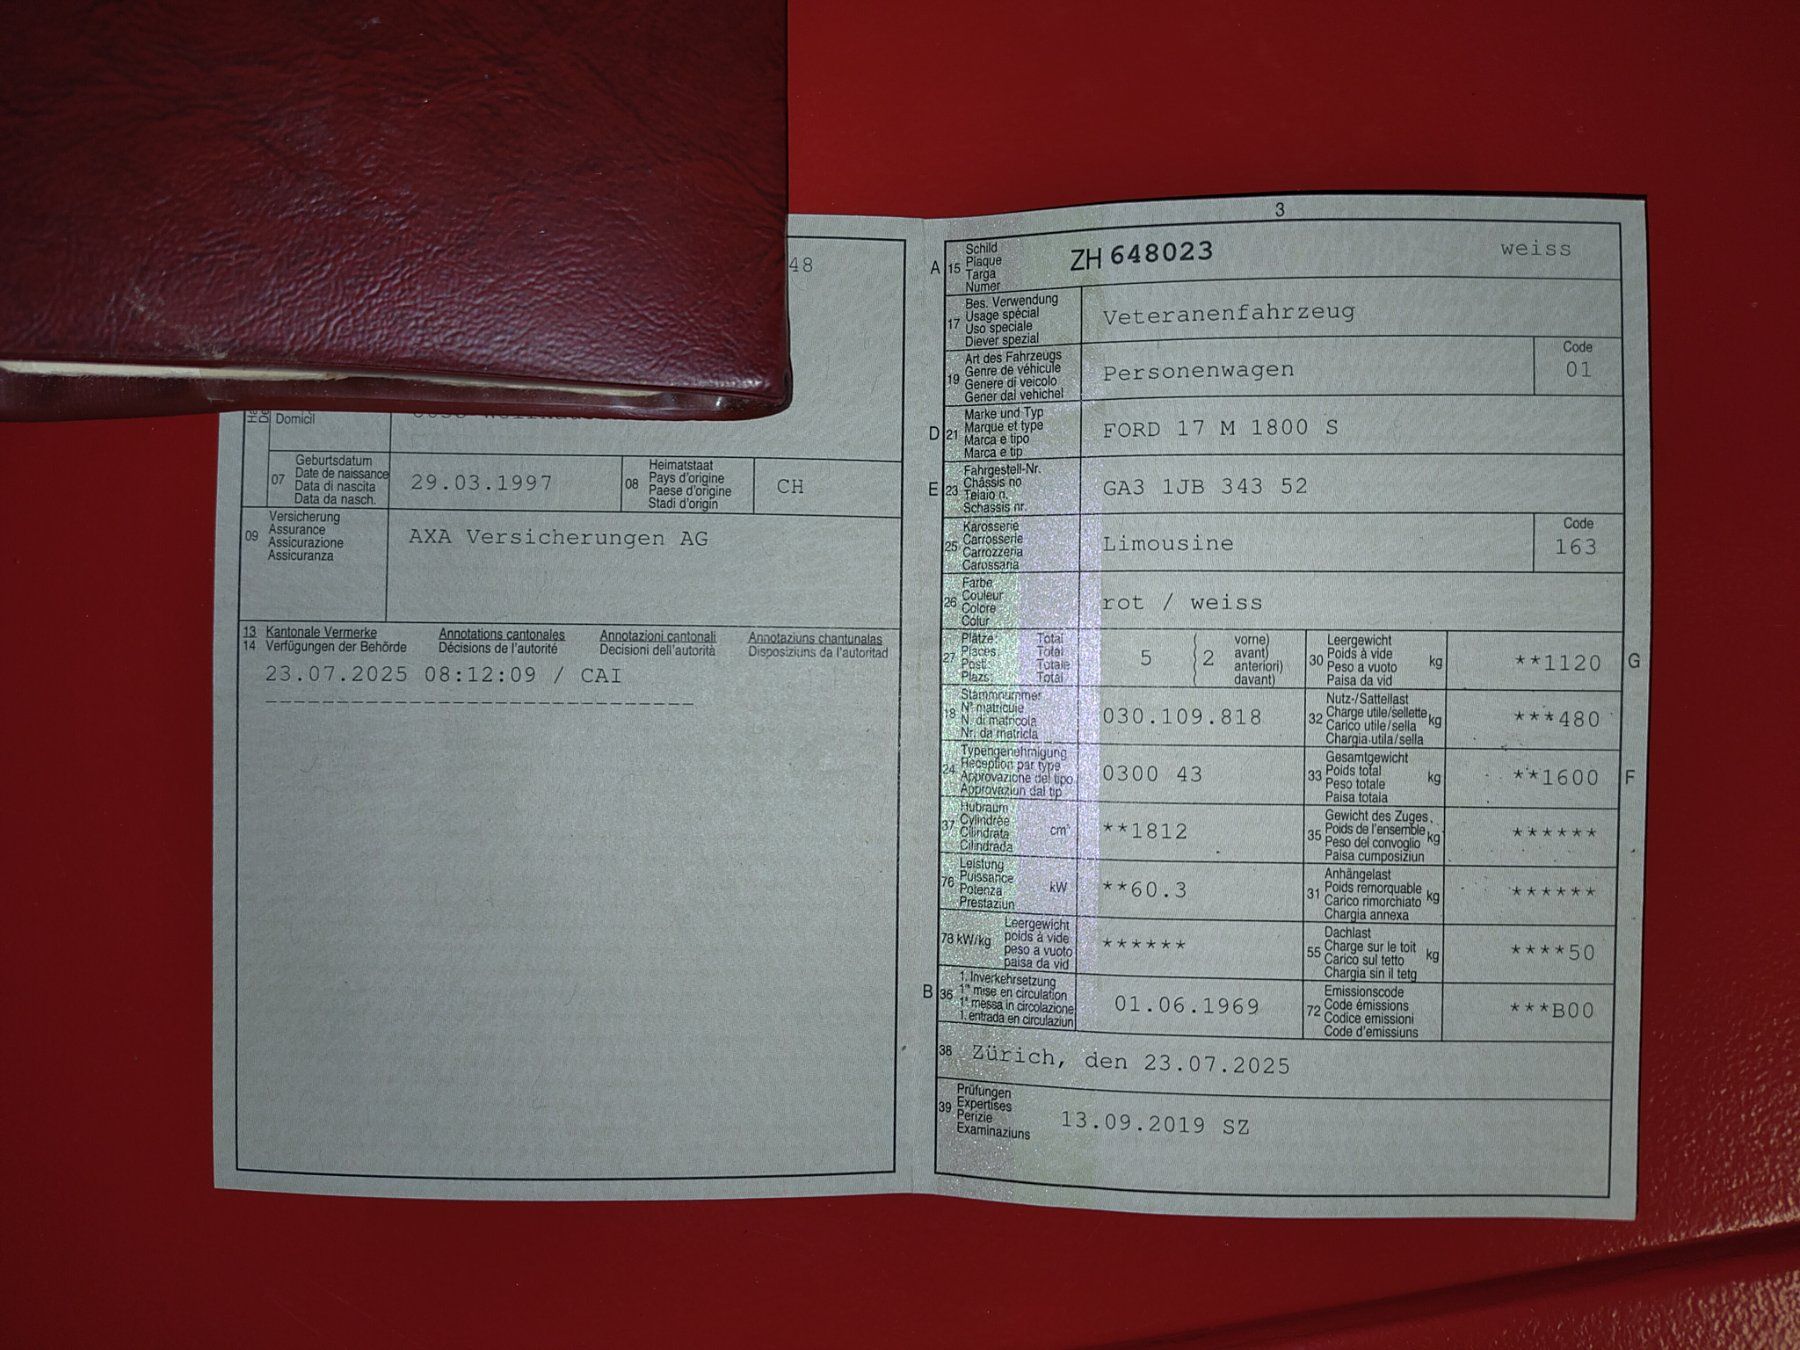 48
Domicil
07
Geburtsdatum
Date de naissance
Data di nascita
Data da nasch.
29.03.1997
08
Heimatstaat
Pays d'origine
Paese d'origine
Stadi d'origin
CH
09
Versicherung
Assurance
Assicurazione
Assicuranza
AXA Versicherungen AG
13 Kantonale Vermerke Annotations cantonales Annotazioni cantonali Annotaziuns chantunalas
14 Verfügungen der Behörde Décisions de l'autorité Decisioni dell'autorità Disposiziuns da l'autoritad
23.07.2025 08:12:09 / CAI
------------------------------
3
A 15
Schild
Plaque
Targa
Numer
ZH 648023 weiss
17
Bes. Verwendung
Usage spécial
Uso speciale
Diever spezial
Veteranenfahrzeug
19
Art des Fahrzeugs
Genre de véhicule
Genere di veicolo
Gener dal vehichel
Personenwagen
Code
01
D 21
Marke und Typ
Marque et type
Marca e tipo
Marca e tip
FORD 17 M 1800 S
E 23
Fahrgestell-Nr.
Châssis no
Telaio n.
Schassis nr.
GA3 1JB 343 52
25
Karosserie
Carrosserie
Carrozzeria
Carossaria
Limousine
Code
163
26
Farbe
Couleur
Colore
Colur
rot / weiss
27
Plätze: Total
Places: Total
Post: Totale
Plazs: Total
5 ( 2
vorne)
avant)
anteriori)
davant)
30
Leergewicht
Poids à vide
Peso a vuoto
Paisa da vid
kg
**1120
G
18
Stammnummer
N° matricule
N. di matricola
Nr. da matricla
030.109.818
32
Nutz-/Sattellast
Charge utile/sellette
Carico utile/sella
Chargia utila/sella
kg
***480
24
Typengenehmigung
Réception par type
Approvazione del tipo
Approvaziun dal tip
0300 43
33
Gesamtgewicht
Poids total
Peso totale
Paisa totala
kg
**1600
F
37
Hubraum
Cylindrée
Cilindrata
Cilindrada
cm³
**1812
35
Gewicht des Zuges
Poids de l'ensemble
Peso del convoglio
Paisa cumposiziun
kg
******
76
Leistung
Puissance
Potenza
Prestaziun
kW
**60.3
31
Anhängelast
Poids remorquable
Carico rimorchiato
Chargia annexa
kg
******
78 kW/kg
Leergewicht
poids à vide
peso a vuoto
paisa da vid
******
55
Dachlast
Charge sur le toit
Carico sul tetto
Chargia sin il tetg
kg
****50
B 36
1. Inverkehrsetzung
1re mise en circulation
1a messa in circolazione
1. entrada en circulaziun
01.06.1969
72
Emissionscode
Code émissions
Codice emissioni
Code d'emissiuns
***B00
38 Zürich, den 23.07.2025
39
Prüfungen
Expertises
Perizie
Examinaziuns
13.09.2019 SZ